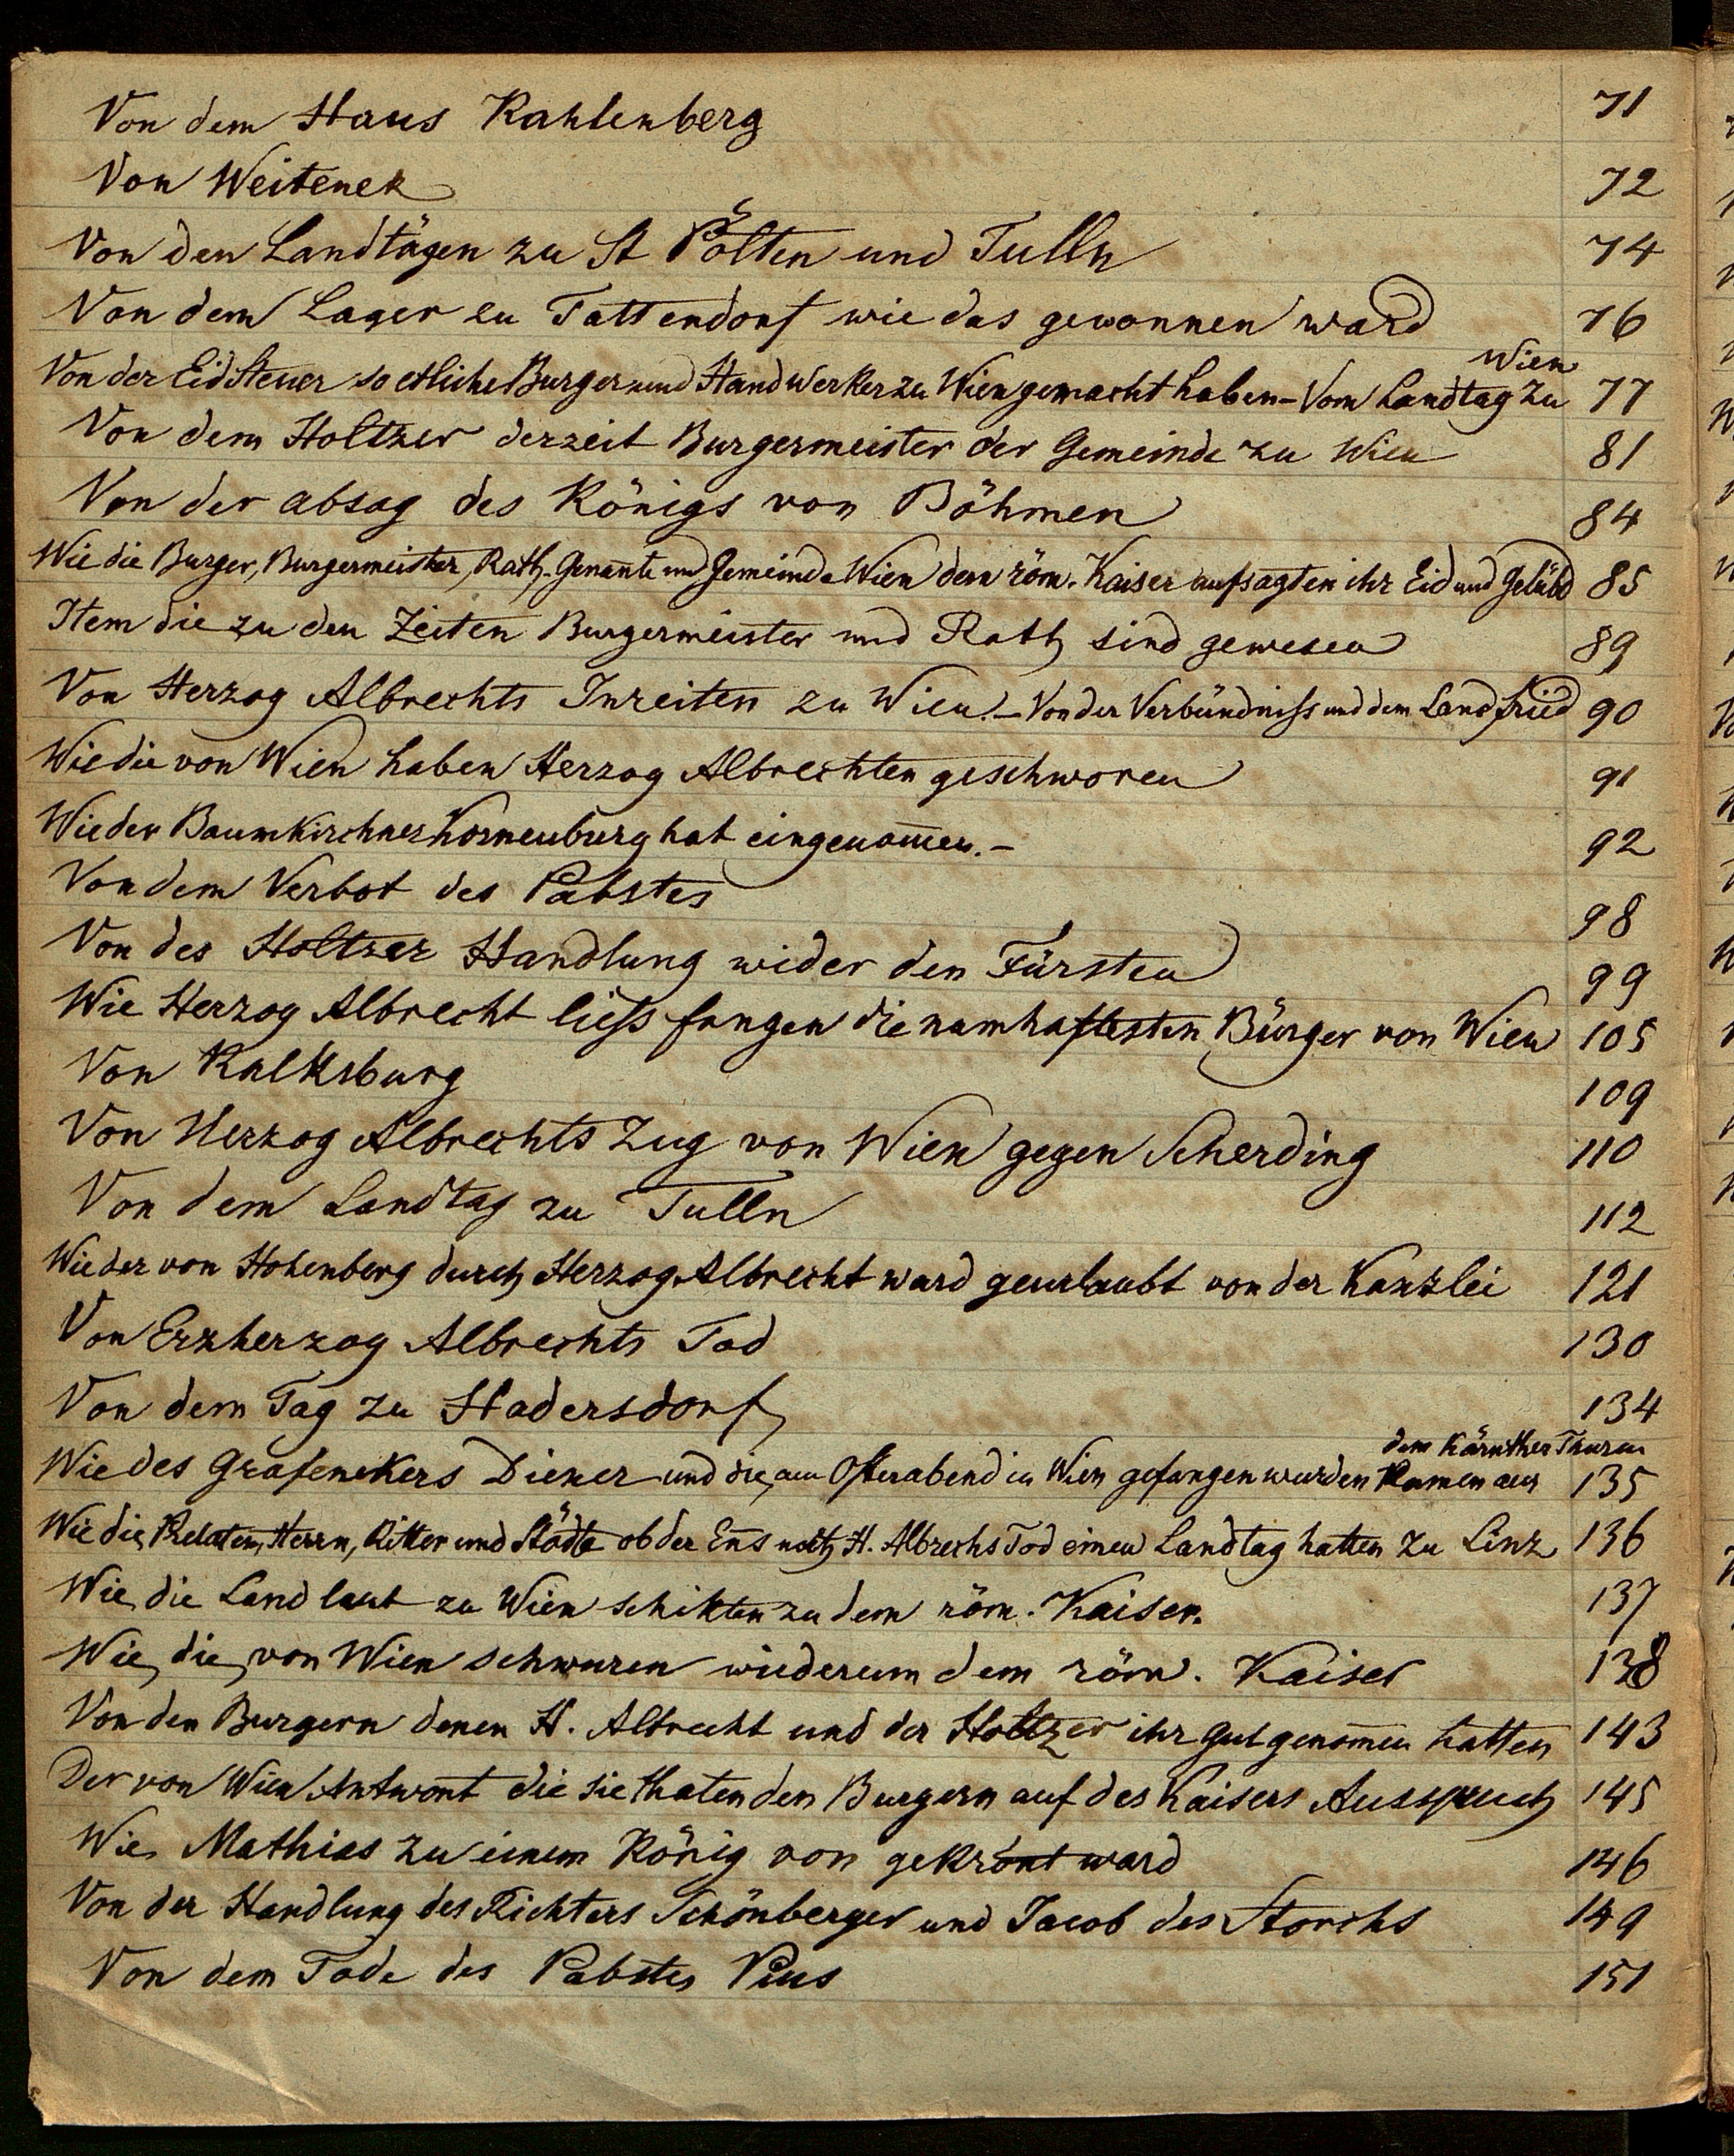 Von dem Haus Kahlenberg 71
Von Weitenek 72
Von den Landtägen zu St Pölten und Tulln 74
Von dem Lager zu Tattendorf wie das gewonnen ward 76
Wien
Von der Eid Steuer so etliche Burger und Handwerker zu Wien gemacht haben - Vom Landtag zu 77
Von dem Holtzer derzeit Burgermeister der Gemeinde zu Wien 81
Von der absag des Königs von Böhmen 84
Wie die Burger, Burgermeister, Rath, Genañte und Gemeinde Wien dem röm. Kaiser aufsagten ihr Eid und Gelübd 85
Item die zu den Zeiten Burgermeister und Rath sind gewesen 89
Von Herzog Albrechts Inreiten zu Wien. - Von der Verbündniss und dem Landfried 90
Wie die von Wien haben Herzog Albrechten geschworen 91
Wie der Baumkirchner Korneuburg hat eingenom̄en. - 92
Von dem Verbot des Pabstes 98
Von des Holtzer Handlung wider den Fürsten 99
Wie Herzog Albrecht liess fangen die namhaftesten Bürger von Wien 105
Von Kalksburg 109
Von Herzog Albrechts Zug von Wien gegen Scherding 110
Von dem Landtag zu Tulln 112
Wie der von Hohenberg durch Herzog Albrecht ward geurlaubt von der Kanzlei 121
Von Erzherzog Albrechts Tod 130
Von dem Tag zu Hadersdorf 134
dem Kärnther Thurm
Wie des Grafenekers Diener und die am Osterabend in Wien gefangen wurden kamen aus 135
Wie die Prelaten, Herrn, Ritter und Städte ob der Eñs nach H. Albrechs Tod einen Landtag hatten zu Linz 136
Wie die Landleut zu Wien schikten zu dem röm. Kaiser. 137
Wie die von Wien schwuren wiederum dem röm. Kaiser 138
Von den Burgern denen H. Albrecht und der Holtzer ihr Gut genom̄en hatten 143
Der von Wien Antwort die sie thaten den Burgern auf des Kaisers Ausspruch 145
Wie Mathias zu einem König von gekrönt ward 146
Von der Handlung des Richters Schönberger und Jacob des Storchs 149
Von dem Tode des Pabstes Pius 151